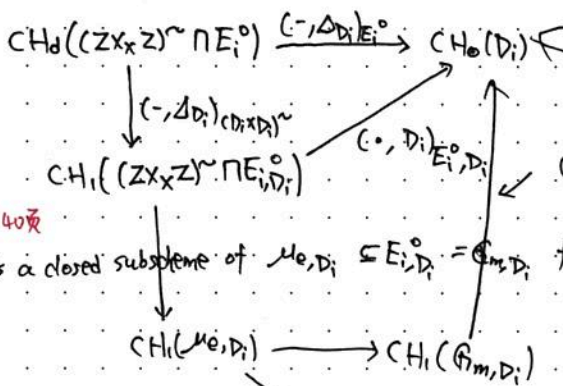 CH_d((Z×_X Z)^~ ∩ E_i°) (-, Δ_{D_i})_{E_i°} CH_0(D_i)
(-, Δ_{D_i})_{(D_i×D_i)^~}
(•, D_i)_{E°_{i,D_i}}
CH_1((Z×_X Z)^~ ∩ E°_{i,D_i})
40页
s a closed subscheme of μ_{e,D_i} ⊆ E°_{i,D_i} = G_{m,D_i}
CH_1(μ_{e,D_i}) CH_1(G_{m,D_i})